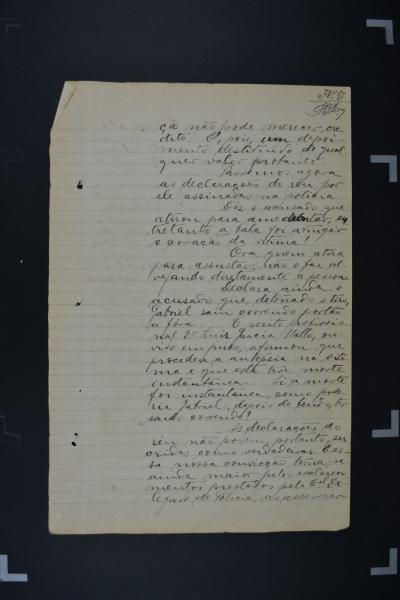 ça não pode merecer cre
dito. E', pois, um depoi
mento destituido de qual
quer valor probante.
Passemos agora
as declarações do réu, por
ele assinadas na policia.
Diz o acusado que
atirou para amedrontar, en
tretanto a bala foi atingir
o coração da vitima!
Ora quem atira
para assustar, não o faz al
vejando diretamente a pessoa.
Declara ainda o
acusado que, detonado o tiro,
Gabriel saiu correndo portão
a fora. O perito profissio
nal Dr. Luiz Garcia Hallo, ou
vido em juizo, afirmou que
procedeu a autopsia na viti
ma e que esta teve morte
instantanea. Si a morte
foi instantanea, como pode
ria Gabriel, depois de ferido, ter
saido correndo!
As declarações do
réu não podem, portanto, ser
cridas como verdadeiras. E es
sa nossa convicção torna-se
ainda maior pelos esclareci
mentos prestados pelo De
legado de Policia, ao asseverar